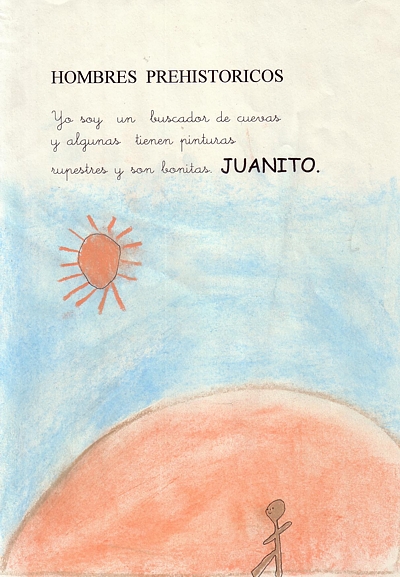 HOMBRES PREHISTORICOS
Yo soy un buscador de cuevas
y algunas tienen pinturas
rupestres y son bonitas. JUANITO.